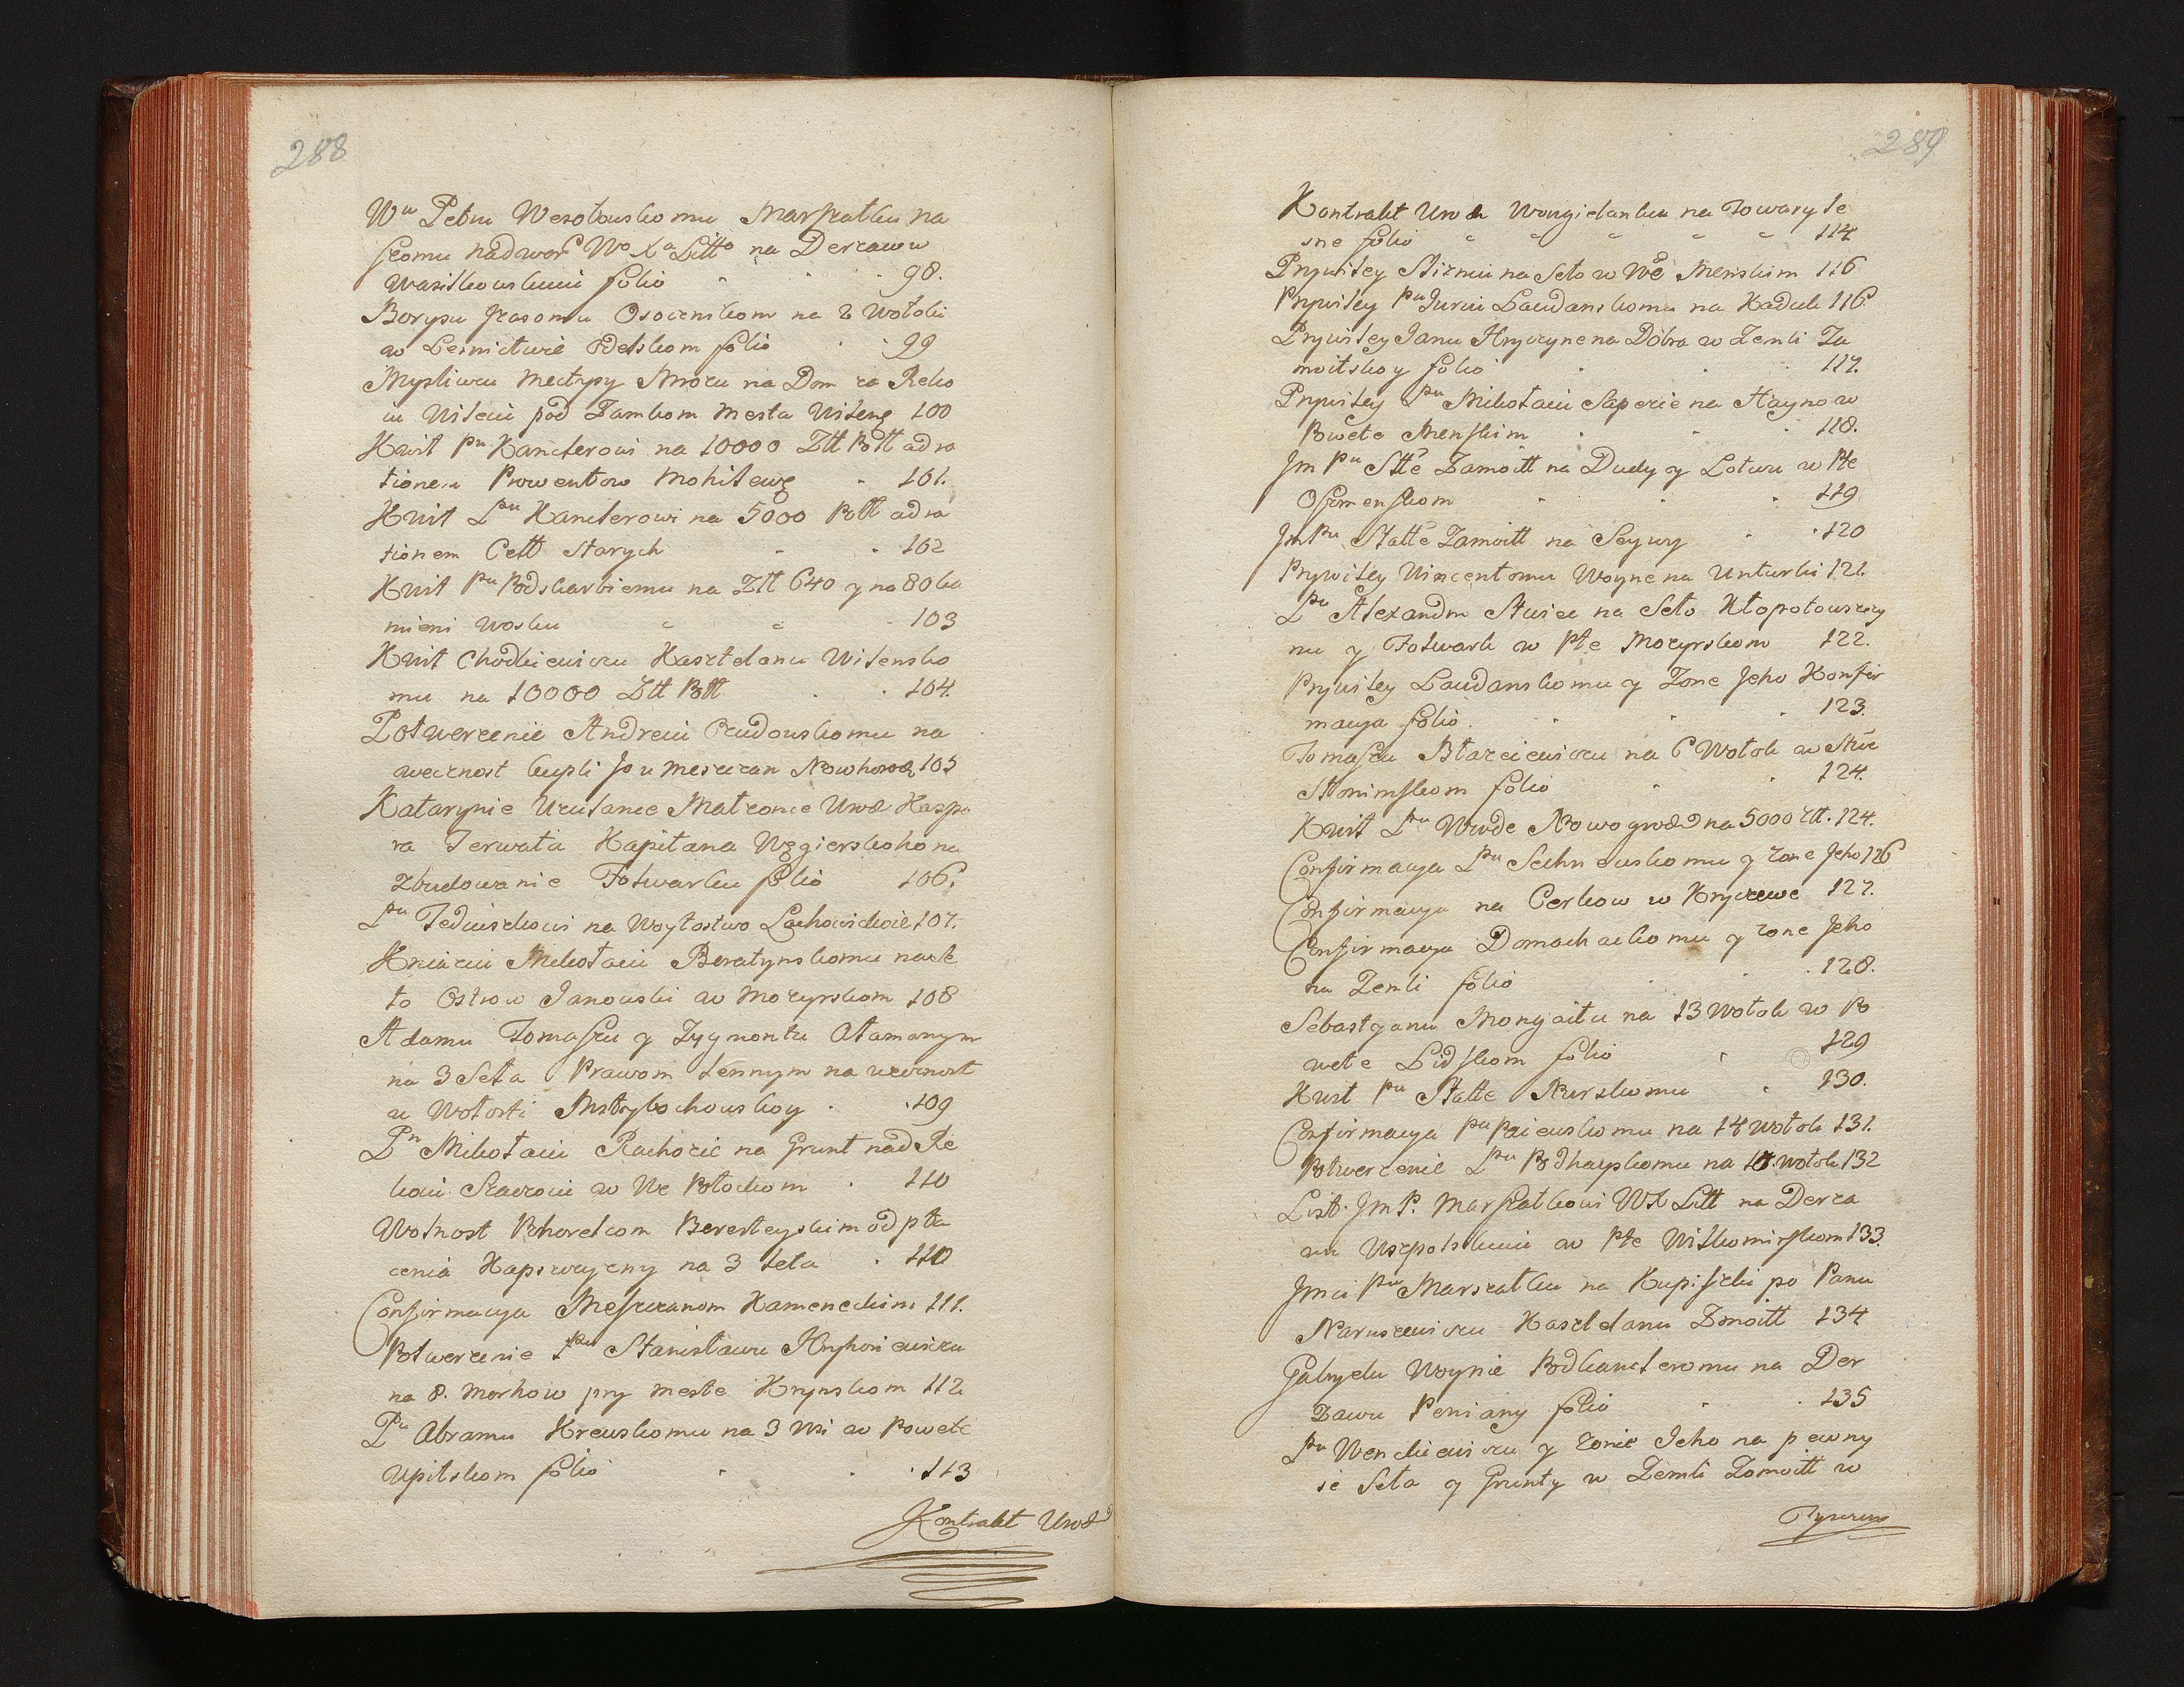 288
Wu Petru Wesołouskomu Marszałku na
szomu nadwor Wo Xa Litto na Derzawu
Wasilkowskuiu folio 98.
Borysu Osocznikom na 2 Wołoki
w Lesnictwie folio 99
Mysliwcu Smoku na Dom za Reko
iu Wileiu pod Zamkom Mesta Wileng 100
Kwit Pu Kanclerowi na 10000 Ztt Pott ad ra
tionem Prowentow Mohilewg 101.
Kwit Lpu Kanclerowi na 5000 Pott ad ra
tionem Cell Starych 102
Kwit Pu Podskarbiemu na Ztt 640 y na 80 ka
mieni Wosku 103
Kwit Chodkiewiczu Kasztelanu Wilensko
mu na 10000 Ztt Pott 104.
Potwerzenie Andreiu Czudouskomu na
wecznost kupli Jo u Meszczan Nowhorod 105
Katarynie Uculance Małzonce Urod Kaspe
ra Terwata Kapitana Węgierskoho na
zbudowanie Folwarku folio 106.
Lpu Teduszkowi na Woytostwo Lachowickoie 107.
Kniaziu Mikołaiu Boratynskomu na Se
ło Ostrow Janouski w Mozyrskom 108
Adamu Tomaszu y Zygmontu Atamanym
na 3 Seła Prawom Lennym na wecznost
u Wołosti Mstybohouskoy 109
Pn Mikołaiu Rachozie na Grunt nad Re
koiu w We Połockom 110
Wolnost Pohorelcom Beresteyskim od pła
cenia Kapszczyzny na 3 leta 110
Confirmacya Meszczanom Kameneckim 111.
Potwerzenie Lpu Stanisławu Hryhoriewiczu
na 8. Morhow pry Meste Krynskom 112
Pu Abramu Kreuskomu na 3 Wsi w Powete
Upitskom folio 113
Kontrakt Urod
289
Kontrakt Urod na Towary Le
sne folio 114
Prywiley na Seło w We Menskim 116
Prywiley Pu Juriu Laudanskomu na Kaduk 116
Prywiley Janu Hryczyne na Dobra w Zemli Ża
moitskoy folio 117.
Prywiley Lpu Mikołaiu Sapezie na Hayno w
Powete Menskim 118.
Jm Pu Stte Zamoitt na Dudy y Lotwu w Pte
Oszmenskom 119
Jm Pu Statte Zamoitt na Seywy 120
Prywiley Wincentomu Woyne na Unturki 121.
Lpu Alexandru Służce na Seło Kłopotowszczy
nu y Folwark w Pte Mozyrskom 122.
Prywiley Laudanskomu y Zone Jeho Konfir
macya folio. 123.
Tomaszu Błazeiewiczu na 6 Wołok w
Słonimskom folio 124.
Kwit Lpu Wwode Nowogrod na 5000 ztt. 124.
Confirmacya Lpu y zone Jeho 126
Confirmacya na Cerkow w Kryczewe 127.
Confirmacya Domachackomu y zone Jeho
na Zemli folio 128.
Sebastyanu Mongaitu na 13 Wołok w Po
wete Lidskom folio 129
Kwit Pu Statte Nurskomu 130.
Confirmacya Pu Paieuskomu na 14 wołok 131.
Potwerzenie Lpu Podhayskomu na wołok 132
List. Jm P. Marszałkowi WX Litt na Derza
wu Uszpolskuiu w Pte Wiłkomirskom 133.
Jmci Pu Marszałku na Kupiszki po Panu
Naruszewiczu Kasztelanu Zmoitt 134
Gabryelu Woynie Podkancleromu na Der
Zawu Peniany folio 135
Pu Wenckiewiczu y zonie Jeho na pewny
ie Seła y Grunty w Zemli Zomoitt w